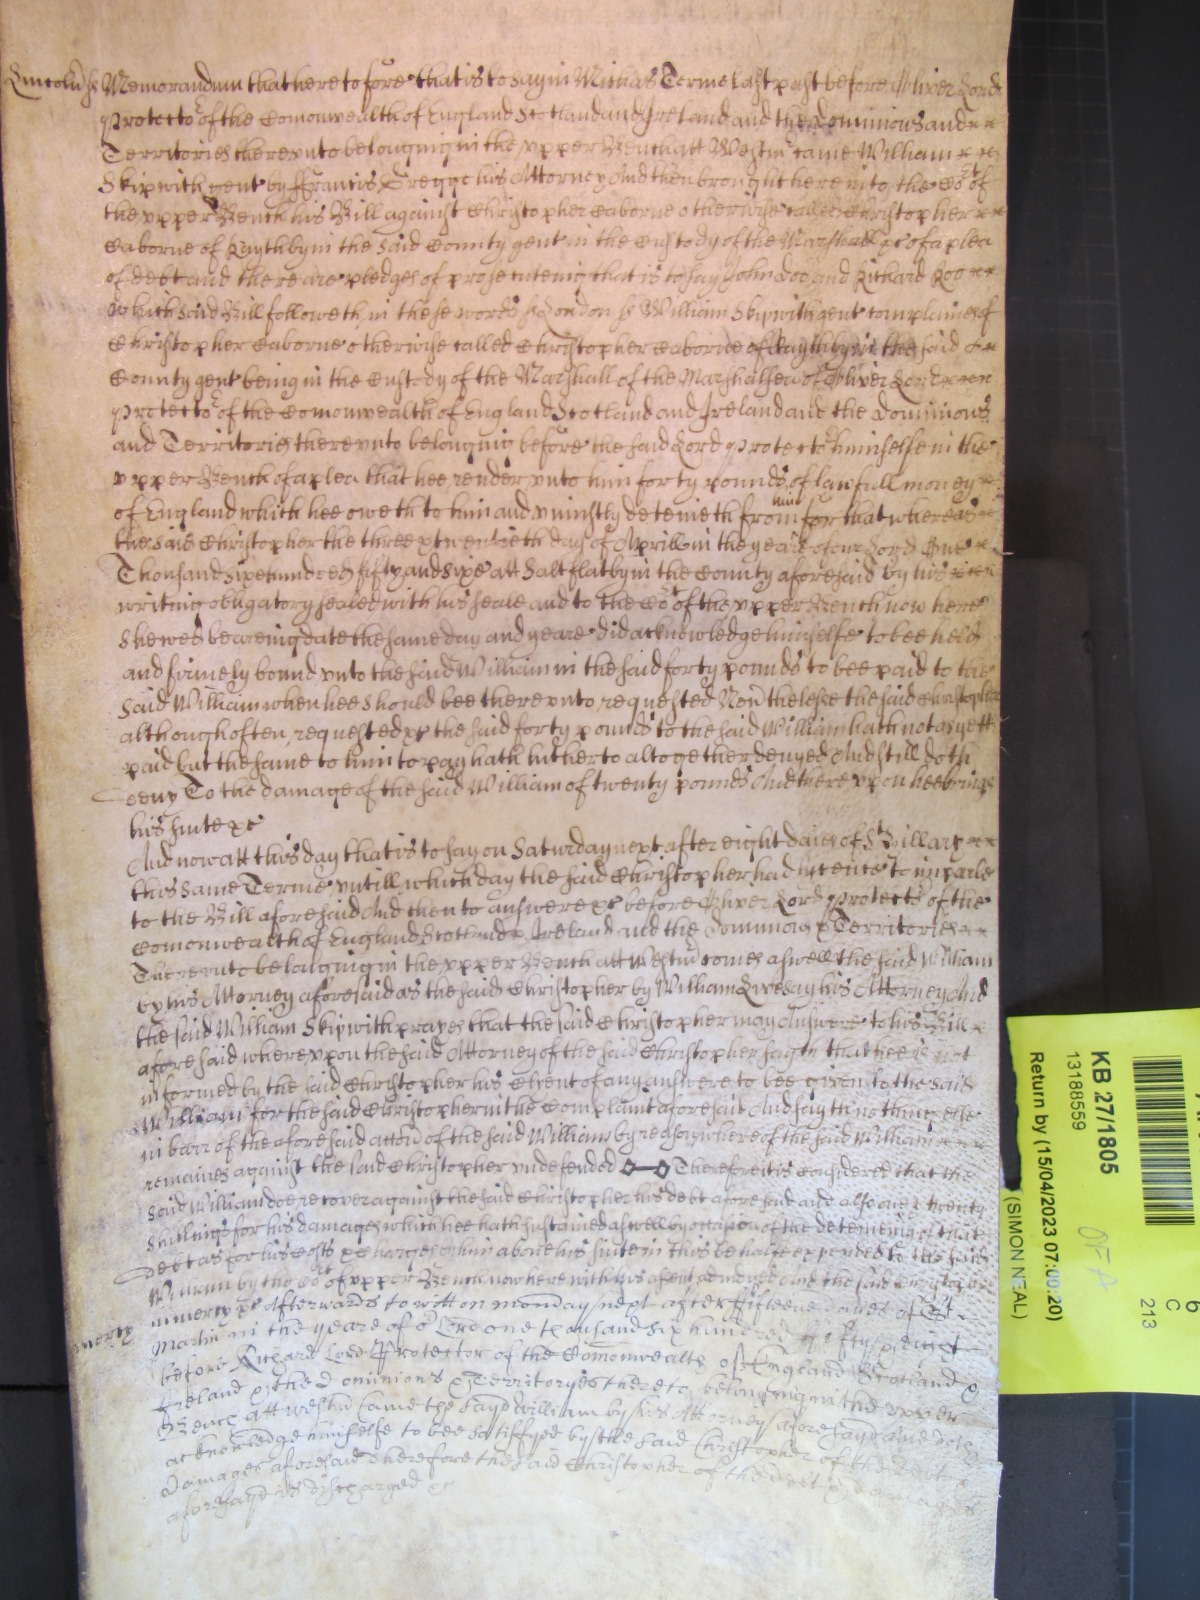 Lincoln ss Memorandum that heretofore that is to say in Michas Terme last past before Oliver Lord
Protector of the Comonwealth of England Scotland and Ireland and the Dominions and
Territories therevnto belonging in the vpper Bench att Westmr came William
Skipwith gent by ffrancis Gregge his Attorney And then brought here into the Cort of
the vpper Bench his Bill against Christopher Caborne otherwise called Christopher
Caborne of Raythby in the said County gent in the Custody of the Marshall &c of a plea
of debt and there are pledges of prosecuteing that is to say John Doo and Richard Roo
which said Bill followeth in these words ss London ss William Skipwith gent complaines of
Christopher Caborne otherwise called Christopher Caborne of Raythby in the said
County gent being in the Custody of the Marshall of the Marshallsea of Oliver Lord
Protector of the Comonwealth of England Scotland and Ireland and the Dominions
and Territories therevnto belonging before the said Lord Protector himselfe in the
vpper Bench of a plea that hee render vnto him forty pounds of lawfull money
of England which hee oweth to him and vniustly deteineth from him for that whereas
the said Christopher the three & twentieth day of Aprill in the yeare of our Lord One
Thousand sixe hundred fifty and sixe att Saltflatby in the County aforesaid by his
writing obligatory sealed with his seale and to the Cort of the vpper Bench now here
shewed beareing date the same day and yeare did acknowledge himselfe to bee held
and firmely bound vnto the said William in the said forty pounds to bee paid to the
said William when hee should bee therevnto requested Neverthelesse the said Christopher
although often requested &c the said forty pounds to the said William hath not as yett
paid but the same to him to pay hath hitherto altogether denyed And still doth
deny To the damage of the said William of twenty pounds And therevpon hee brings
his suite &c
And now att this day that is to say on Saturday next after eight daies of St Hillary
this same Terme vntill which day the said Christopher had lycence to imparle
to the Bill aforesaid And then to answere &c before Oliver Lord Protector of the
Comonwealth of England Scotland & Ireland and the Dominions & Territories
Therevnto belonging in the vpper Bench att Westmr comes aswell the said William
by his Attorney aforesaid as the said Christopher by William Livesay his Attorney And
the said William Skipwith prayes that the said Christopher may Answere to his Bill
aforesaid wherevpon the said Attorney of the said Christopher sayth that hee is not
informed by the said Christopher his Clyent of any answere to bee given to the said
William for the said Christopher in the Complaint aforesaid And sayth nothing else
in barr of the aforesaid accon of the said William by reason whereof the said William
remaines against the said Christopher vndefended Therefore it is Considered that the
said William doe recover against the said Christopher his debt aforesaid and also
shillings for his damages which hee hath sustained aswell by occasion of the deteineing of that
debt as for his Costs & Charges by him about his suite in this behalfe expended to the said
William by the Cort of vpper Bench now here with his assent adiudged And the said Christopher
mercy in mercy &c Afterwards to witt on monday next after ffifteene daies of St
Martin in the yeare of or Lord one thousand six hundred fifty
before Richard Lord Protector of the Comonwealth of England Scotland &
Ireland & the Dominions & Territoryes thereto belonging in the vpper
Bench att westmr came the sayd William by his Attorney aforesayd and doth
acknowledge himselfe to bee satisfyed by the said Christopher of the debt &
Damages aforesaid Therefore the said Christopher of the debt & damages
aforesayd is discharged &c
KB 27/1805
13188559
Return by (15/04/2023 07:00:20)
(SIMON NEAL)
6
C
213